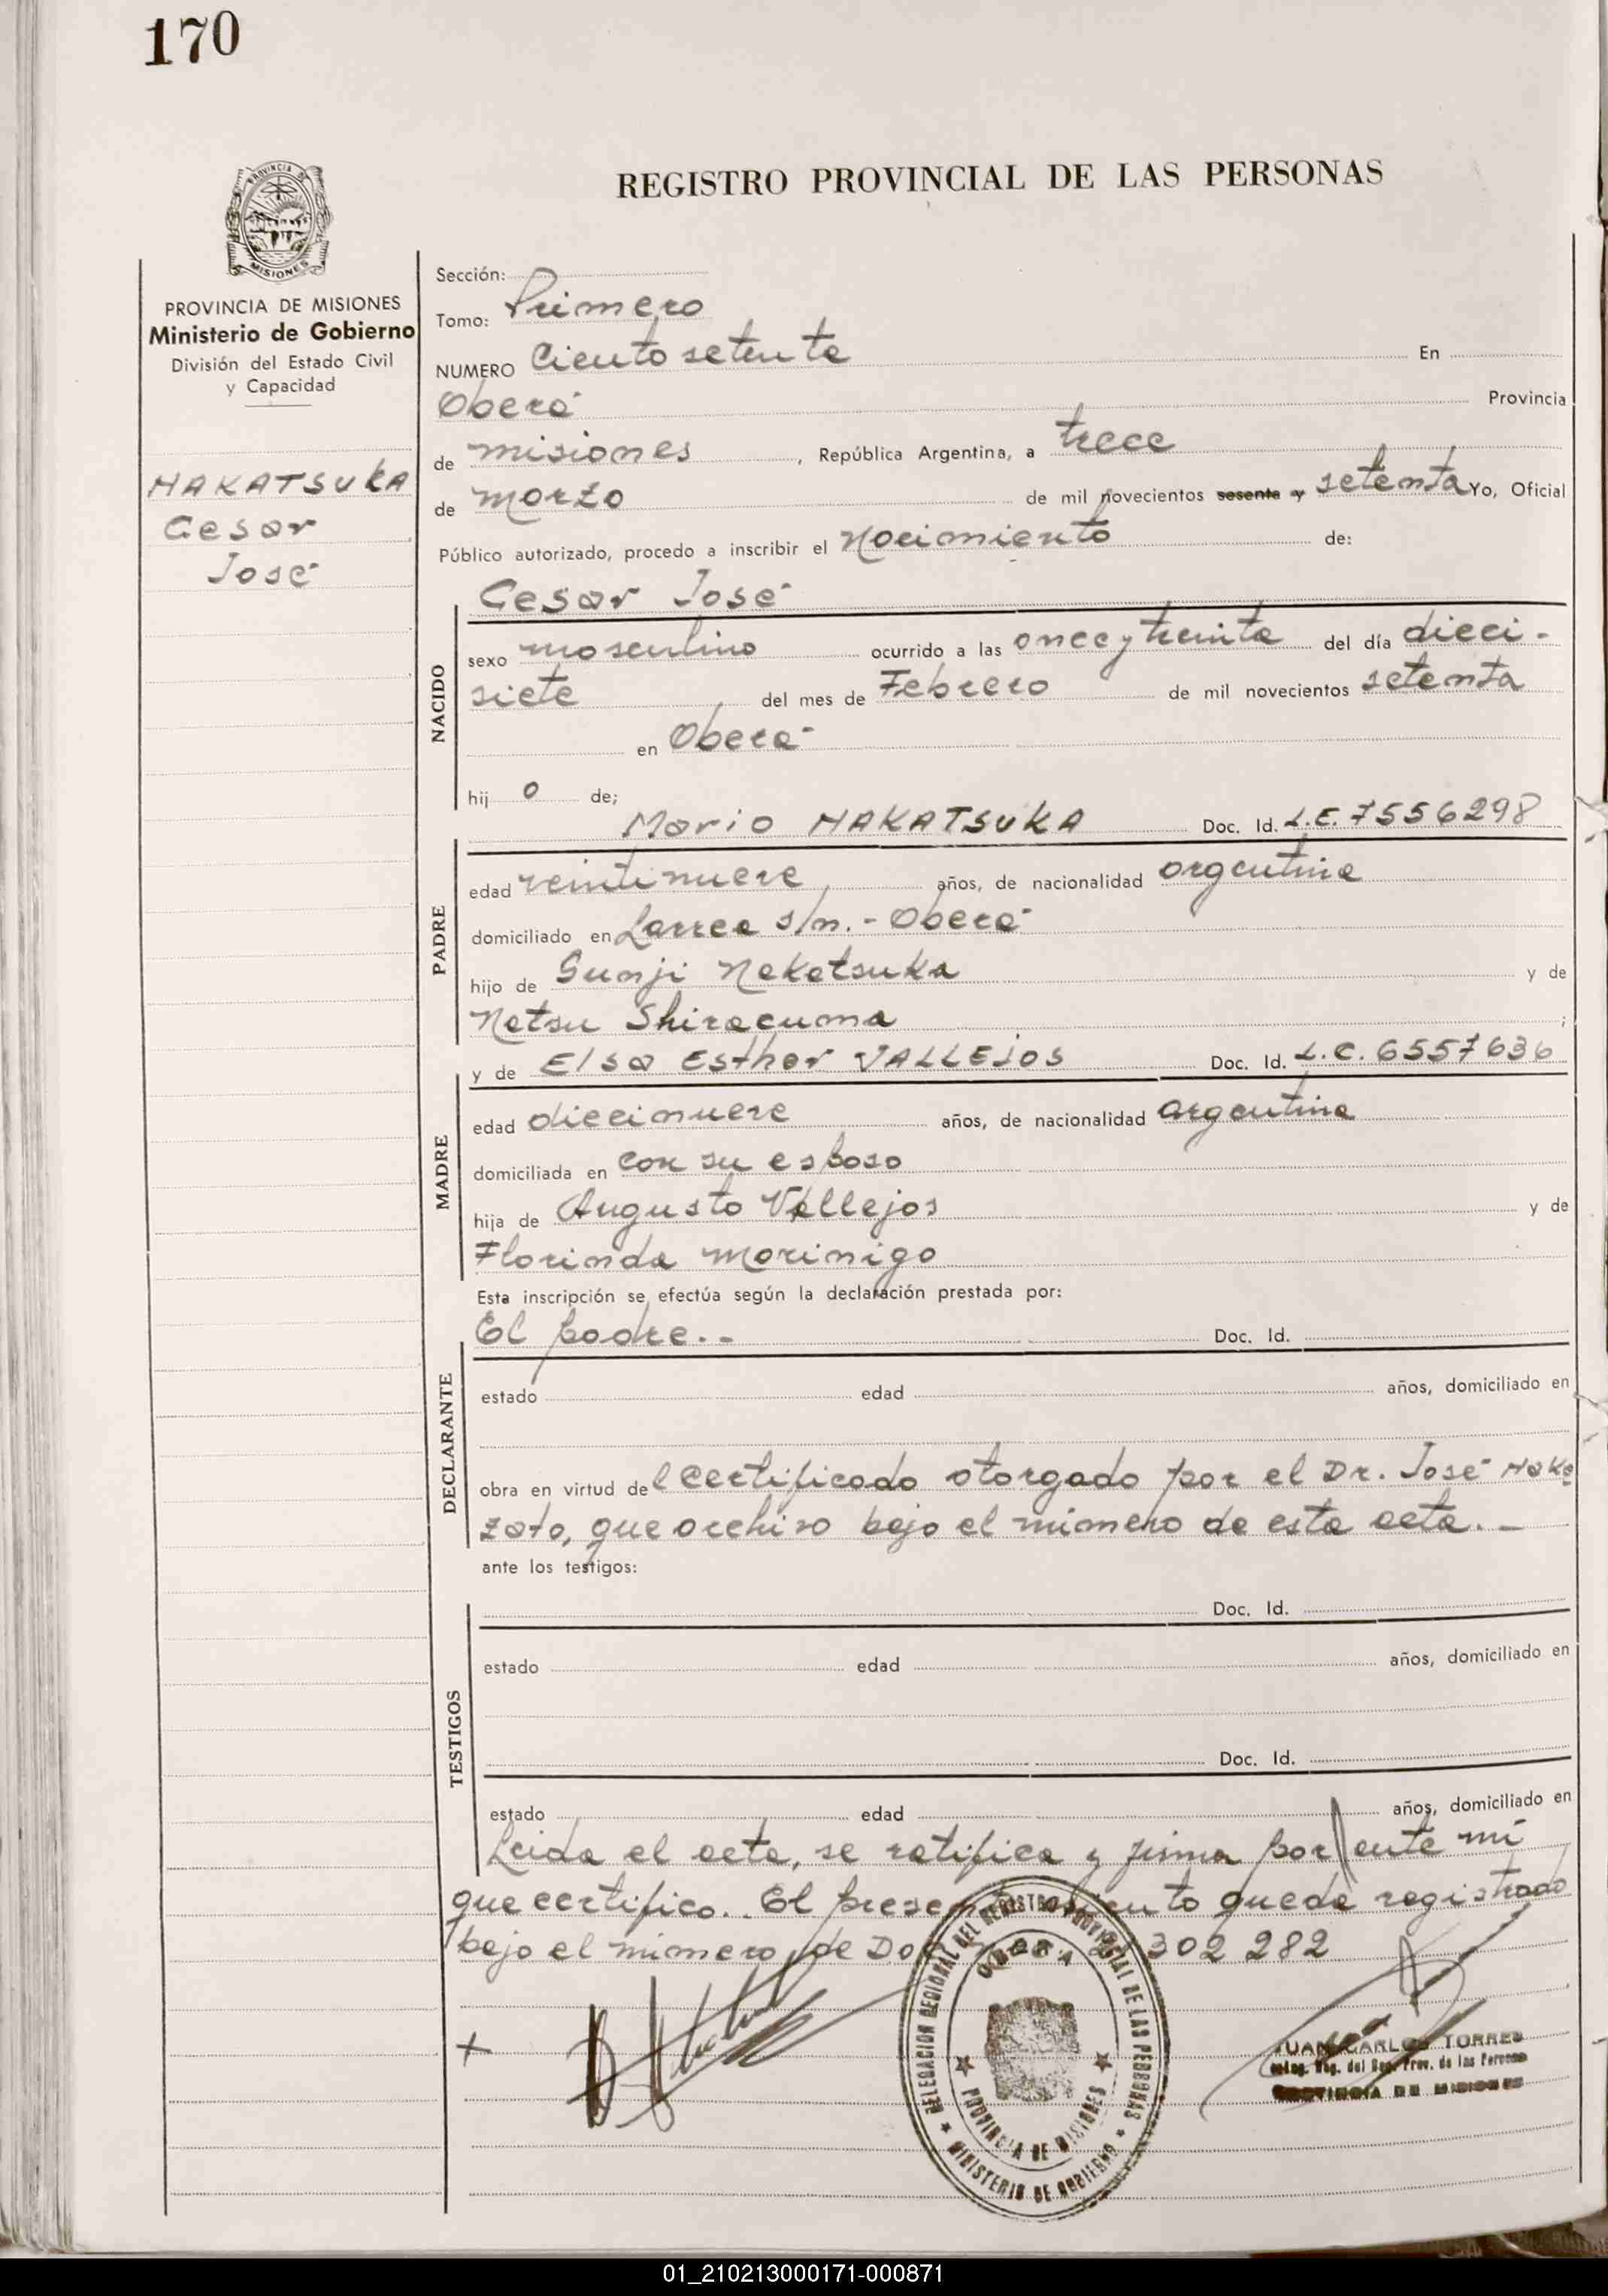 170
PROVINCIA DE
MISIONES
REGISTRO PROVINCIAL DE LAS PERSONAS
PROVINCIA DE MISIONES
Ministerio de Gobierno
División del Estado Civil
y Capacidad
NAKATSUKA
Cesar
José
Sección:
Tomo: Primero
NUMERO Ciento setenta En
Oberá Provincia
de misiones, República Argentina, a trece
de marzo de mil novecientos sesenta y setenta Yo, Oficial
Público autorizado, procedo a inscribir el Nacimiento de:
Cesar José
NACIDO
sexo masculino ocurrido a las once y treinta del día dieci-
siete del mes de Febrero de mil novecientos setenta
en Oberá
hij o de;
Mario NAKATSUKA Doc. Id. L.E. 7556298
PADRE
edad veintinueve años, de nacionalidad argentina
domiciliado en Larrea s/n.- Oberá
hijo de Sunji Nakatsuka y de
Natsu Shiracuma;
y de Elsa Esther VALLEJOS Doc. Id. L.C. 6557636
MADRE
edad diecinueve años, de nacionalidad argentina
domiciliada en con su esposo
hija de Augusto Vallejos y de
Florinda Morinigo
Esta inscripción se efectúa según la declaración prestada por:
El padre.- Doc. Id.
DECLARANTE
estado edad años, domiciliado en
obra en virtud de l certificado otorgado por el Dr. José Naka
zato, que archivo bajo el número de esta acta.-
ante los testigos:
Doc. Id.
TESTIGOS
estado edad años, domiciliado en
Doc. Id.
estado edad años, domiciliado en
Leida el acta, se ratifica y firma por ante mí
que certifico.. El presente quede registrado
bajo el número de 302 282
DELEGACION REGIONAL DEL REGISTRO PROVINCIAL DE LAS PERSONAS
OBERA
PROVINCIA DE MISIONES
MINISTERIO DE GOBIERNO
JUAN CARLOS TORRES
Deleg. Reg. del Reg. Prov. de las Personas
PROVINCIA DE MISIONES
01_210213000171-000871